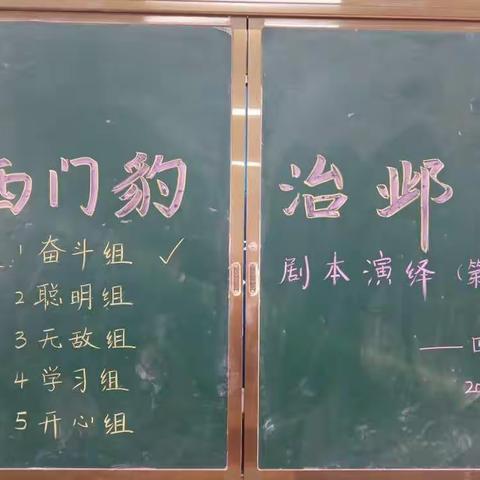 西门豹 治邺
1 奋斗组 ✓
2 聪明组
3 无敌组
4 学习组
5 开心组
剧本演绎（第
——
20